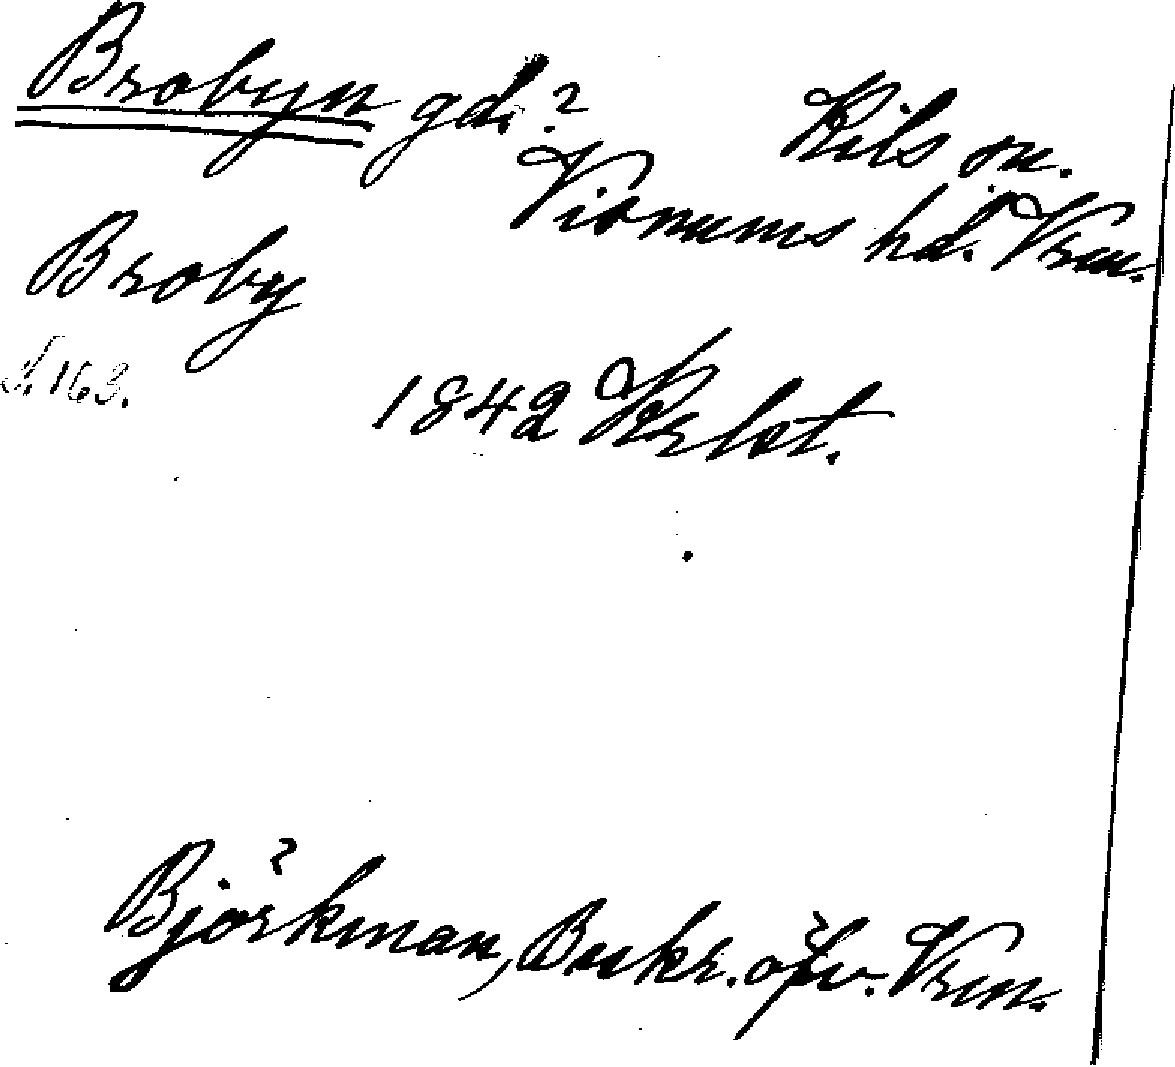 Brobyn gd.?
Kils sn.
Visnums hd. Vrm.
Broby
S. 163.
1842 Krlst.
Björkman, Beskr. öfv. Vrm.